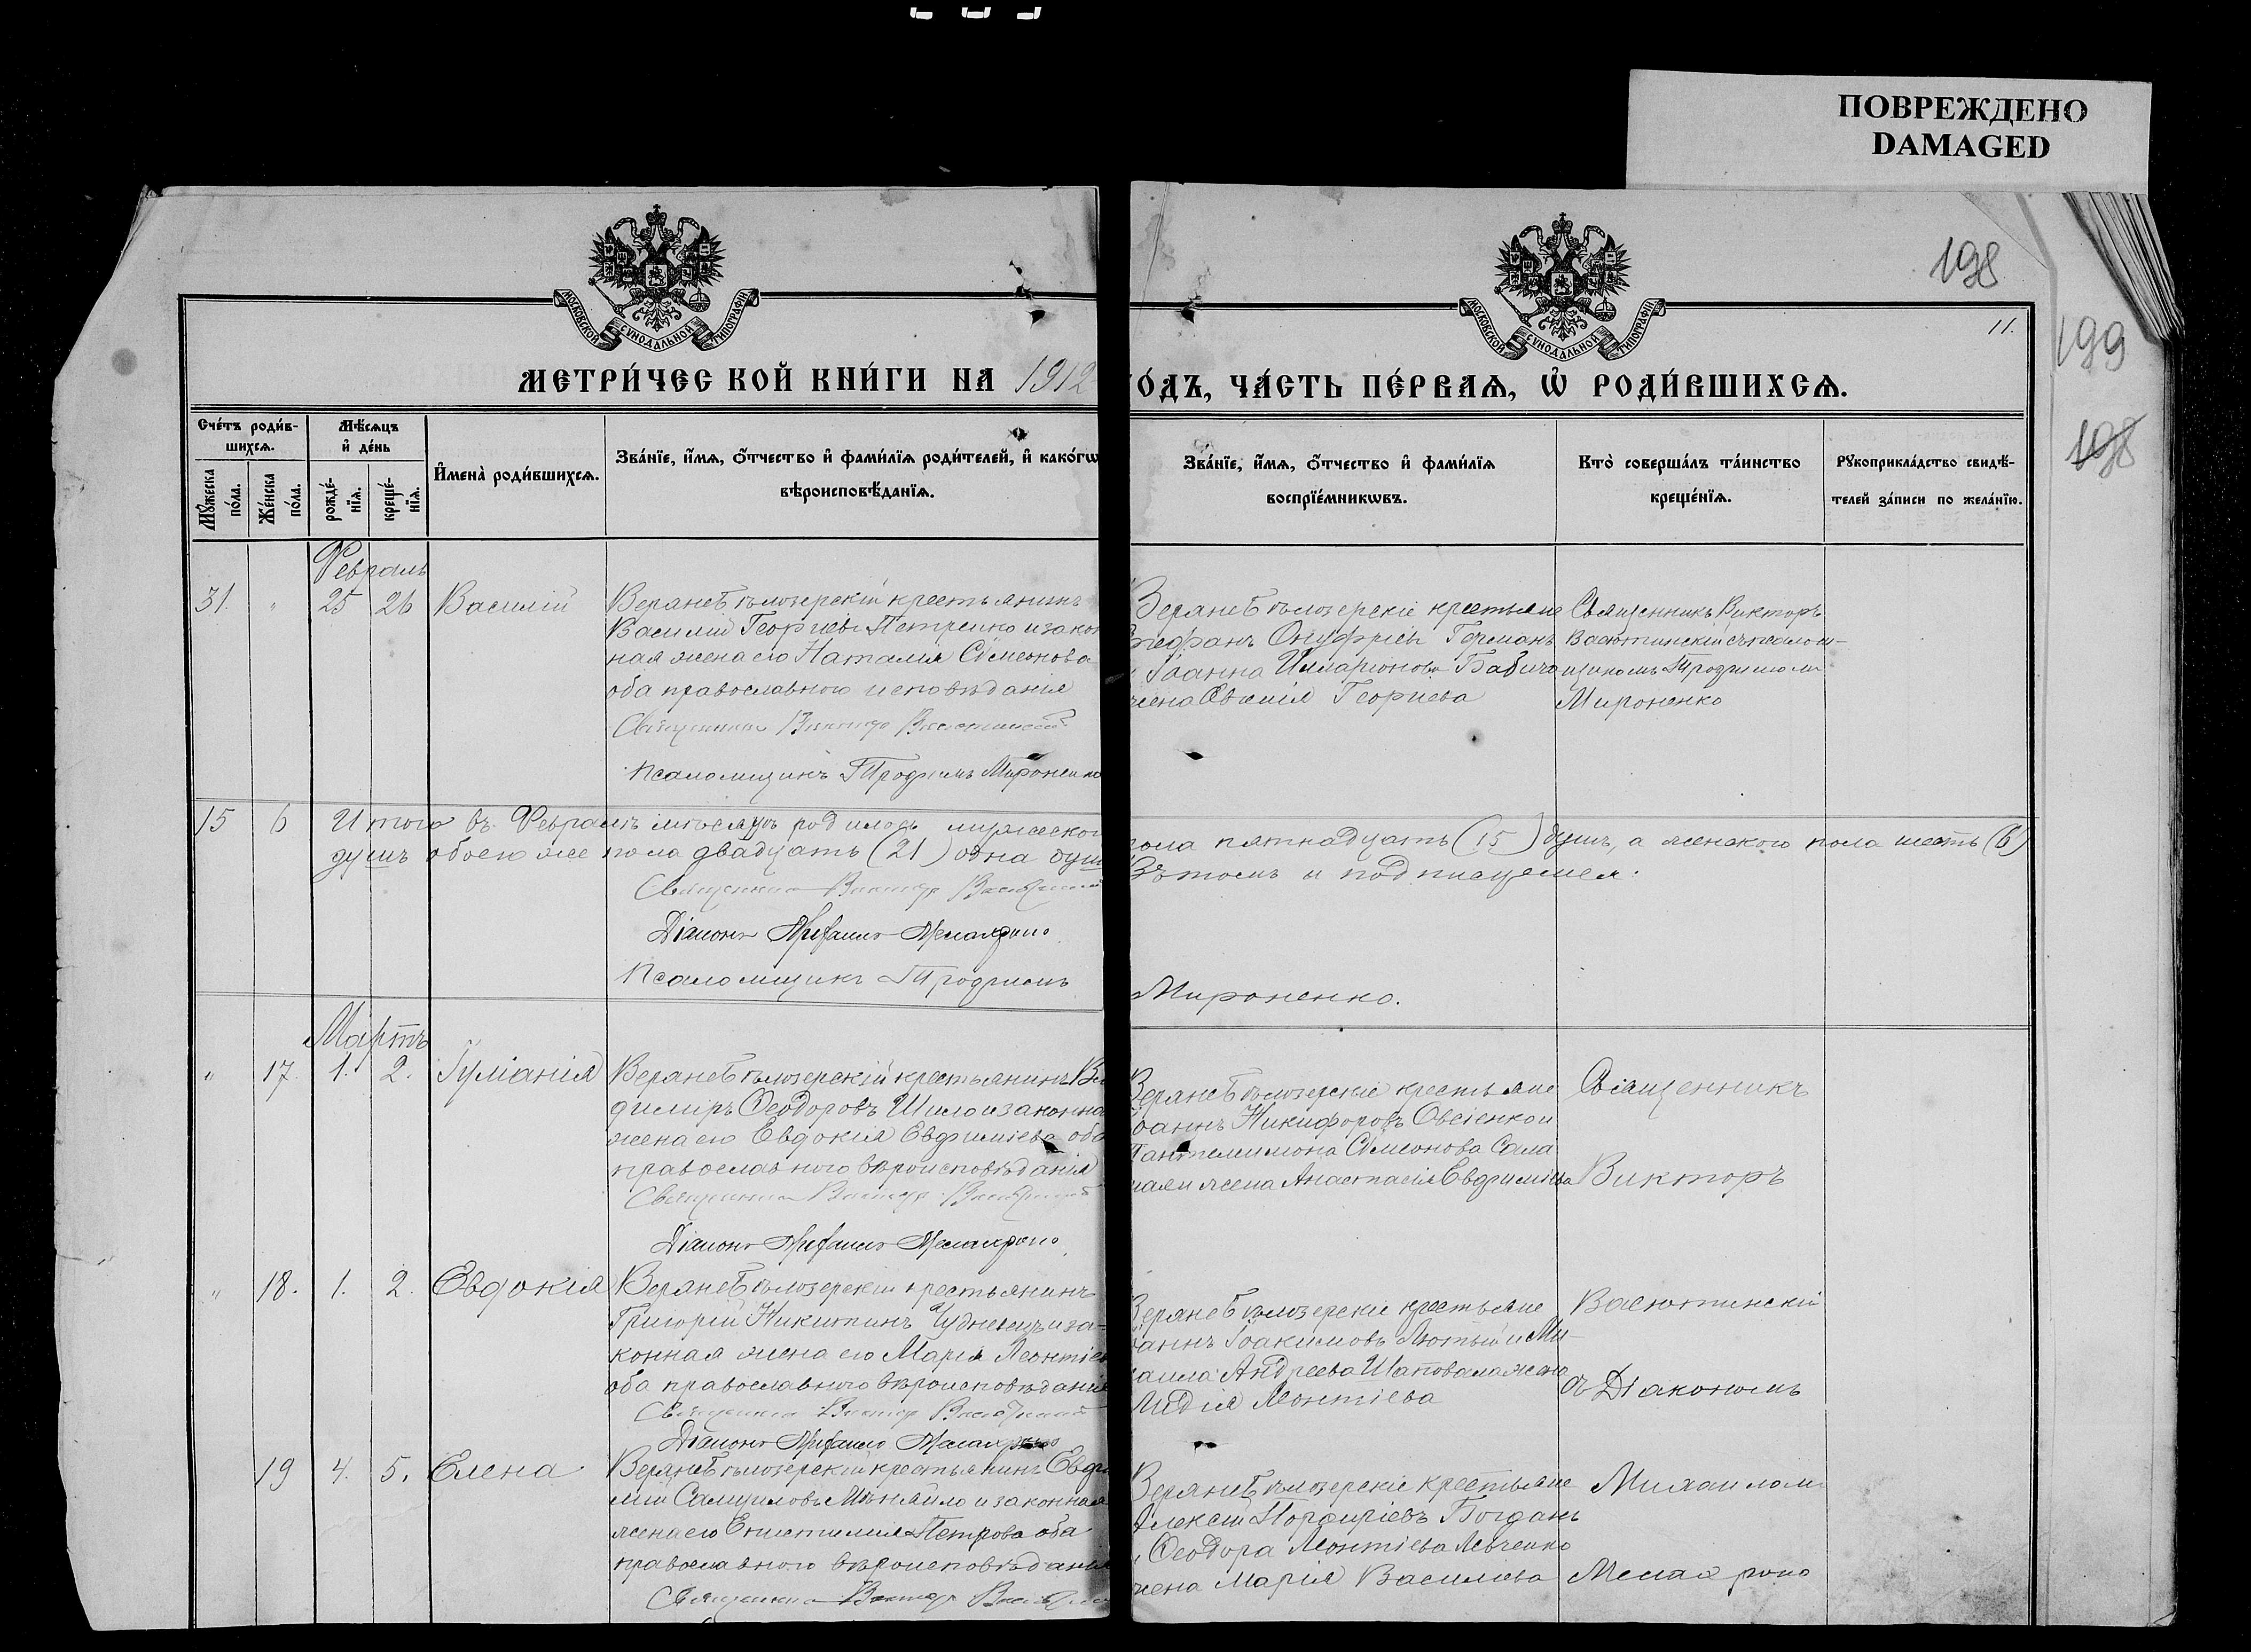 ПОВРЕЖДЕНО
DAMAGED
198
11.
199
198
МОСКОВСКОЙ СѴНОДАЛЬНОЙ ТИПОГРАФІИ
МОСКОВСКОЙ СѴНОДАЛЬНОЙ ТИПОГРАФІИ
МЕТРИ́ЧЕСКОЙ КНИ́ГИ НА 1912
ГО́ДЪ, ЧА́СТЬ ПЕ́РВАѦ, Ѡ РОДИ́ВШИХСѦ.
Сче́тъ роди́в-
шихсѧ.
Мꙋ́жеска по́ла.
Же́нска по́ла.
Мѣ́сѧцъ
и҆ де́нь
рожде́-
нїѧ.
креще́-
нїѧ.
И҆мена̀ роди́вшихсѧ.
Зва́нїе, и҆́мѧ, ѻ҆́тчество и҆ фами́лїѧ роди́телей, и҆ како́гѡ
вѣроисповѣ́данїѧ.
Зва́нїе, и҆́мѧ, ѻ҆́тчество и҆ фами́лїѧ
воспрїе́мникѡвъ.
Кто̀ соверша́лъ та́инство
креще́нїѧ.
Рꙋкоприкла́дство свидѣ́-
телей за́писи по жела́нїю.
Февраль
31. " 25 26 Василій Верхнебѣлозерскій крестьянинъ
Василій Георгіевъ Петренко и закон
ная жена его Наталія Сѵмеонова
оба православного исповѣданія
Священникъ Викторъ Васютинскій
Псаломщикъ Трофимъ Мироненко
крестьяне
Стефанъ Онуфріевъ Герман
Іоанна Илларіонова Бабича
жена Евгенія Георгіева
Священникъ Викторъ
Васютинскій съ псалом-
щикомъ Трофимомъ
Мироненко
15 6 Итого въ Февралѣ мѣсяцѣ родилось мужеского
пола пятнадцать (15) душъ, а женского пола шесть (6)
душъ обоего же пола двадцать (21) одна душ
Въ томъ и подписуемся.
Священникъ Викторъ Васютинскій
Діаконъ
Псаломщикъ Трофимъ
Мироненко.
Мартъ
" 17. 1. 2. Іуліанія крестьянинъ Вла
димиръ Ѳеодоровъ Шило и законна
жена его Евдокія Евфиміева оба
православного вѣроисповѣданія
Священникъ Викторъ Васютинскій
Діаконъ
крестьяне
Іоаннъ Никифоровъ Овсіенко и
Пантелеимона Сѵмеонова
жена Анастасія Евфиміева
Священникъ
Викторъ
" 18. 1. 2. Евдокія крестьянинъ
Григорій Никитинъ и за-
конная жена его Марія Леонтіев
оба православного вѣроисповѣданія
Священникъ Викторъ Васютинскій
Діаконъ
крестьяне
Іоаннъ Іоакимовъ Лютый и Ми-
хаила Андреева Шаповала жена
Лидія Леонтіева
Васютинскій
съ Діакономъ
19 4. 5. Елена крестьянинъ Евфи
мій Самуиловъ и законная
жена его Петрова оба
православного вѣроисповѣданія
Священникъ Викторъ
крестьяне
Алексій Порфиріевъ Богданъ
и Ѳеодора Леонтіева Левченко
жена Марія Василіева
Михаиломъ